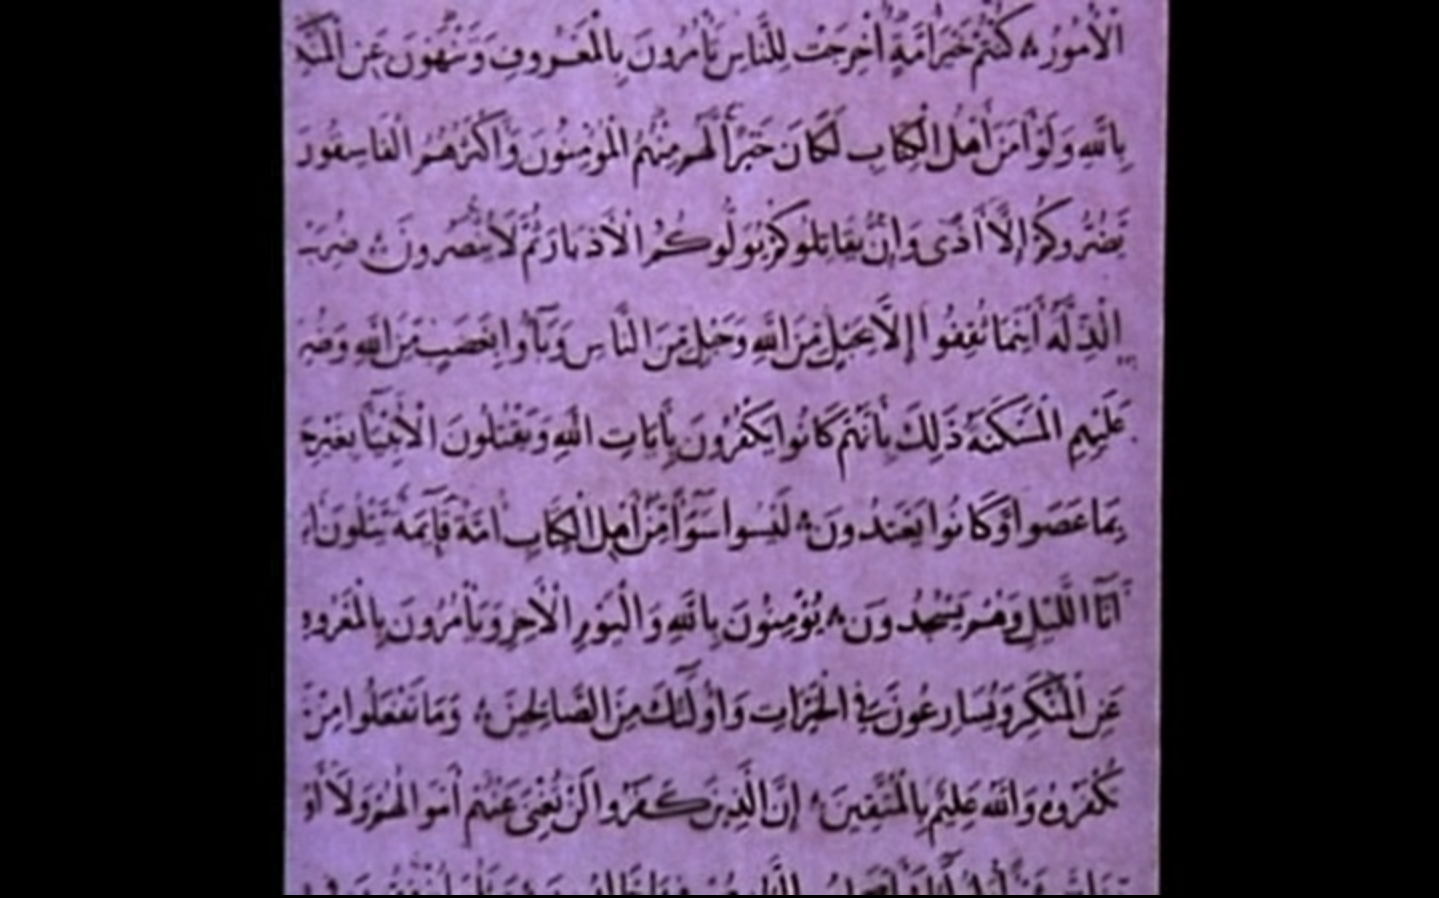 الْأُمُورُ كُنْتُمْ خَيْرَ أُمَّةٍ أُخْرِجَتْ لِلنَّاسِ تَأْمُرُونَ بِالْمَعْرُوفِ وَتَنْهَوْنَ عَنِ الْمُنْكَ
بِاللَّهِ وَلَوْ آمَنَ أَهْلُ الْكِتَابِ لَكَانَ خَيْرًا لَهُمْ مِنْهُمُ الْمُؤْمِنُونَ وَأَكْثَرُهُمُ الْفَاسِقُونَ
يَضُرُّوكُمْ إِلَّا أَذًى وَإِنْ يُقَاتِلُوكُمْ يُوَلُّوكُمُ الْأَدْبَارَ ثُمَّ لَا يُنْصَرُونَ ضُرِبَتْ
الذِّلَّةُ أَيْنَمَا ثُقِفُوا إِلَّا بِحَبْلٍ مِنَ اللَّهِ وَحَبْلٍ مِنَ النَّاسِ وَبَآؤُا بِغَضَبٍ مِنَ اللَّهِ وَضُرِ
عَلَيْهِمُ الْمَسْكَنَةُ ذَلِكَ بِأَنَّهُمْ كَانُوا يَكْفُرُونَ بِأَيَاتِ اللَّهِ وَيَقْتُلُونَ الْأَنْبِيَآءَ بِغَيْرِ حَ
بِمَا عَصَوْا وَكَانُوا يَعْتَدُونَ لَيْسُوا سَوَآءً مِنْ أَهْلِ الْكِتَابِ أُمَّةٌ قَآئِمَةٌ يَتْلُونَ
آنَآءَ اللَّيْلِ وَهُمْ يَسْجُدُونَ يُؤْمِنُونَ بِاللَّهِ وَالْيَوْمِ الْآخِرِ وَيَأْمُرُونَ بِالْمَعْرُوفِ
عَنِ الْمُنْكَرِ وَيُسَارِعُونَ فِي الْخَيْرَاتِ وَأُولَٓئِكَ مِنَ الصَّالِحِينَ وَمَا تَفْعَلُوا مِنْ
تُكْفَرُوهُ وَاللَّهُ عَلِيمٌ بِالْمُتَّقِينَ إِنَّ الَّذِينَ كَفَرُوا لَنْ تُغْنِيَ عَنْهُمْ أَمْوَالُهُمْ وَلَا أَوْ